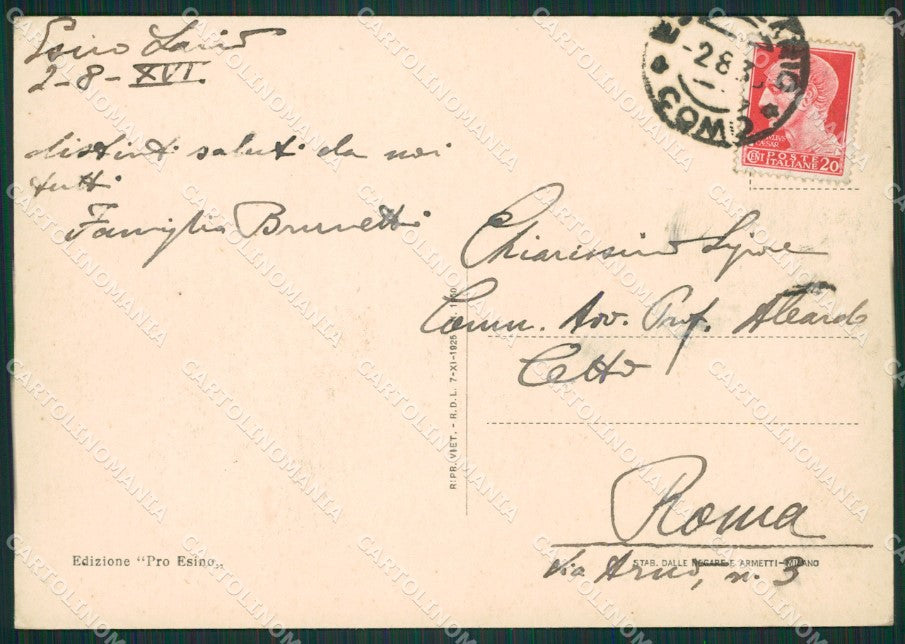 Esino Lario
2-8-XVI
distinti saluti da noi
tutti
Famiglia Brunetti
-2 8 3
COMO
IULIVS
CAESAR
CENT POSTE ITALIANE 20
Chiarissimo Signore
Comm. Avv. Prof. Aleardo
Cetto
Roma
Via Arno, n. 3
RIPR. VIET. - R.D.L. 7-XI-1925
Edizione "Pro Esino„
STAB. DALLE NOGARE E ARMETTI - MILANO
CARTOLINOMANIA